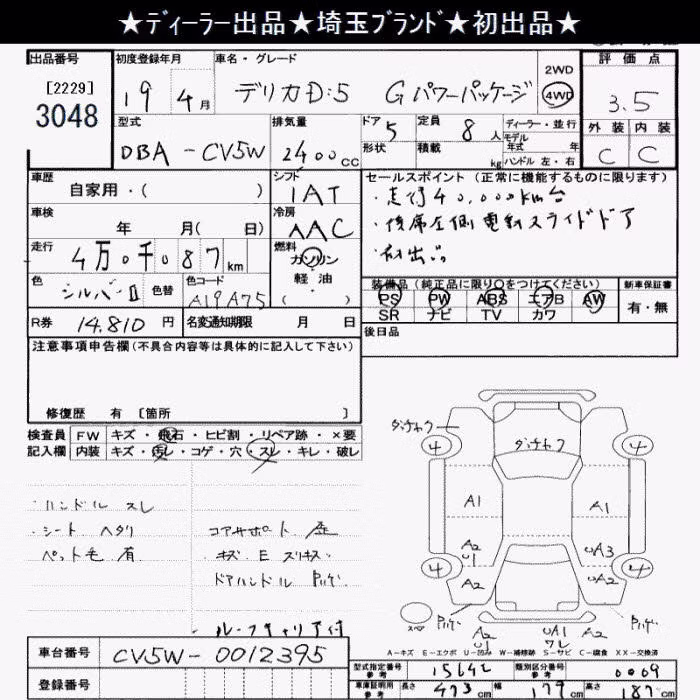 ★ディーラー出品★埼玉ブランド★初出品★
出品番号
[2229]
3048
初度登録年月
19 年 4 月
車名・グレード
デリカD:5 Gパワーパッケージ
2WD
4WD
評価点
3.5
外装 内装
C C
型式
DBA-CV5W
排気量
2400 cc
ドア 5
形状
定員 8 人
積載 kg
ディーラー・並行
モデル年式 年
ハンドル 左・右
車歴
自家用・( )
シフト
IAT
車検
年 月( 日)
冷房
AAC
走行
4万0千087 km
燃料
ガソリン
軽油
( )
色
シルバーII
色替
色コード
A19A75
R券 14.810 円
名変通知期限 月 日
セールスポイント (正常に機能するものに限ります)
・走行40,000km台
・後席左側電動スライドドア
・初出品
装備品 (純正品に限り○をつけてください)
PS PW ABS エアB AW
SR ナビ TV カワ
新車保証書
有・無
後日品
注意事項申告欄(不具合内容等は具体的に記入して下さい)
修復歴 有 [箇所 ]
検査員記入欄
FW キズ・飛石・ヒビ割・リペア跡・×要
内装 キズ・汚レ・コゲ・穴・スレ・キレ・破レ
・ハンドル スレ
・シート ヘタリ
ペット毛 有
コアサポート 歪
・キズ E スリキズ・
ドアハンドル
・ルーフキャリア付
ダンチャク
ダンチャク
4 4
A1 A1
A2 U1
UA3
4 4
A2
UA2
スペア
A2 U2
UA1
ワレ
A-キズ E-エクボ U-凹み W-補修跡 S-サビ C-腐食 XX-交換済
車台番号 CV5W-0012395
登録番号
型式指定番号 参考 15642
類別区分番号 参考 0009
車庫証明用 参考 長さ 473 cm 幅 179 cm 高さ 187 cm